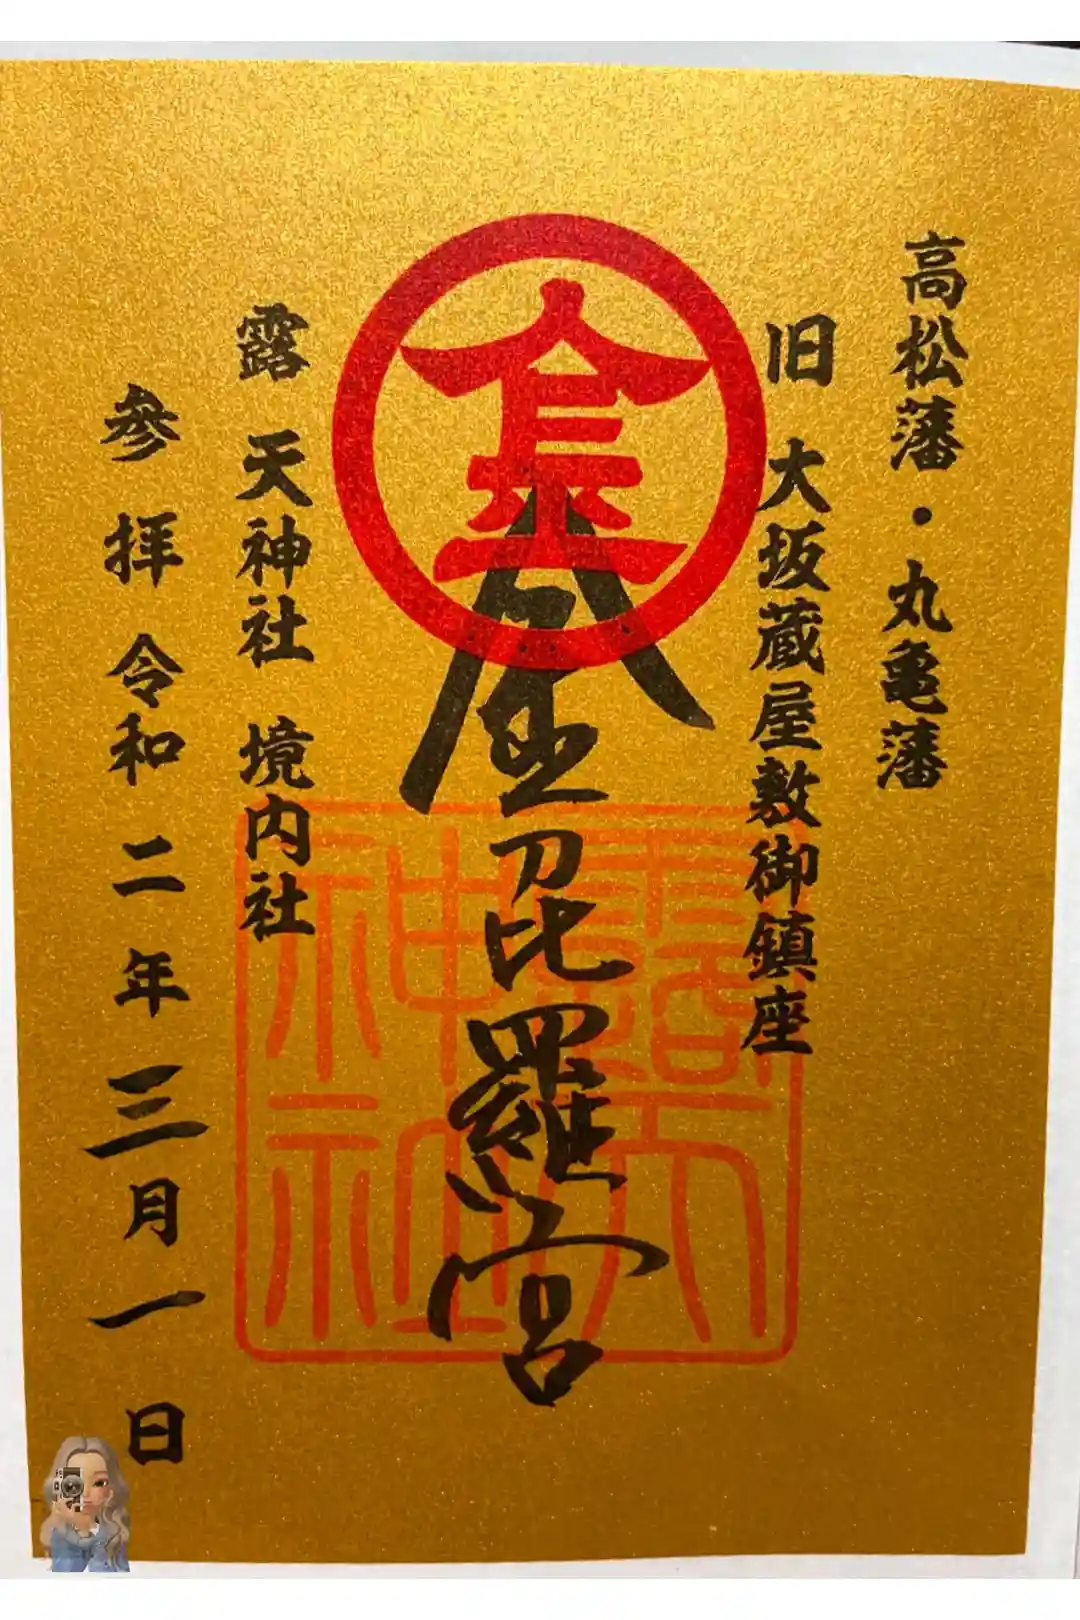 高松藩・丸亀藩
旧 大坂蔵屋敷御鎮座
金
金毘羅宮
露天
神社
露 天神社 境内社
参拝 令和二年三月一日